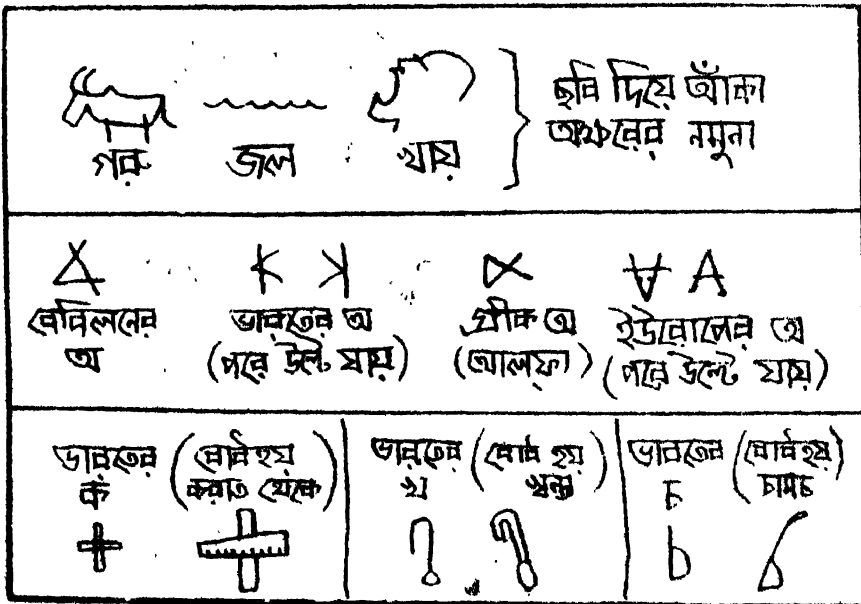 গরু জল খায়
ছবি দিয়ে আঁকা
অক্ষরের নমুনা
বেবিলনের
অ
ভারতের অ
(পরে উল্টে যায়)
গ্রীক অ
(আলফা)
ইউরোপের অ
(পরে উল্টে যায়)
ভারতের
ক
(বোধ হয়
করাত থেকে)
ভারতের
খ
(বোধ হয়
খন্তা)
ভারতের
চ
(বোধ হয়
চামচ)